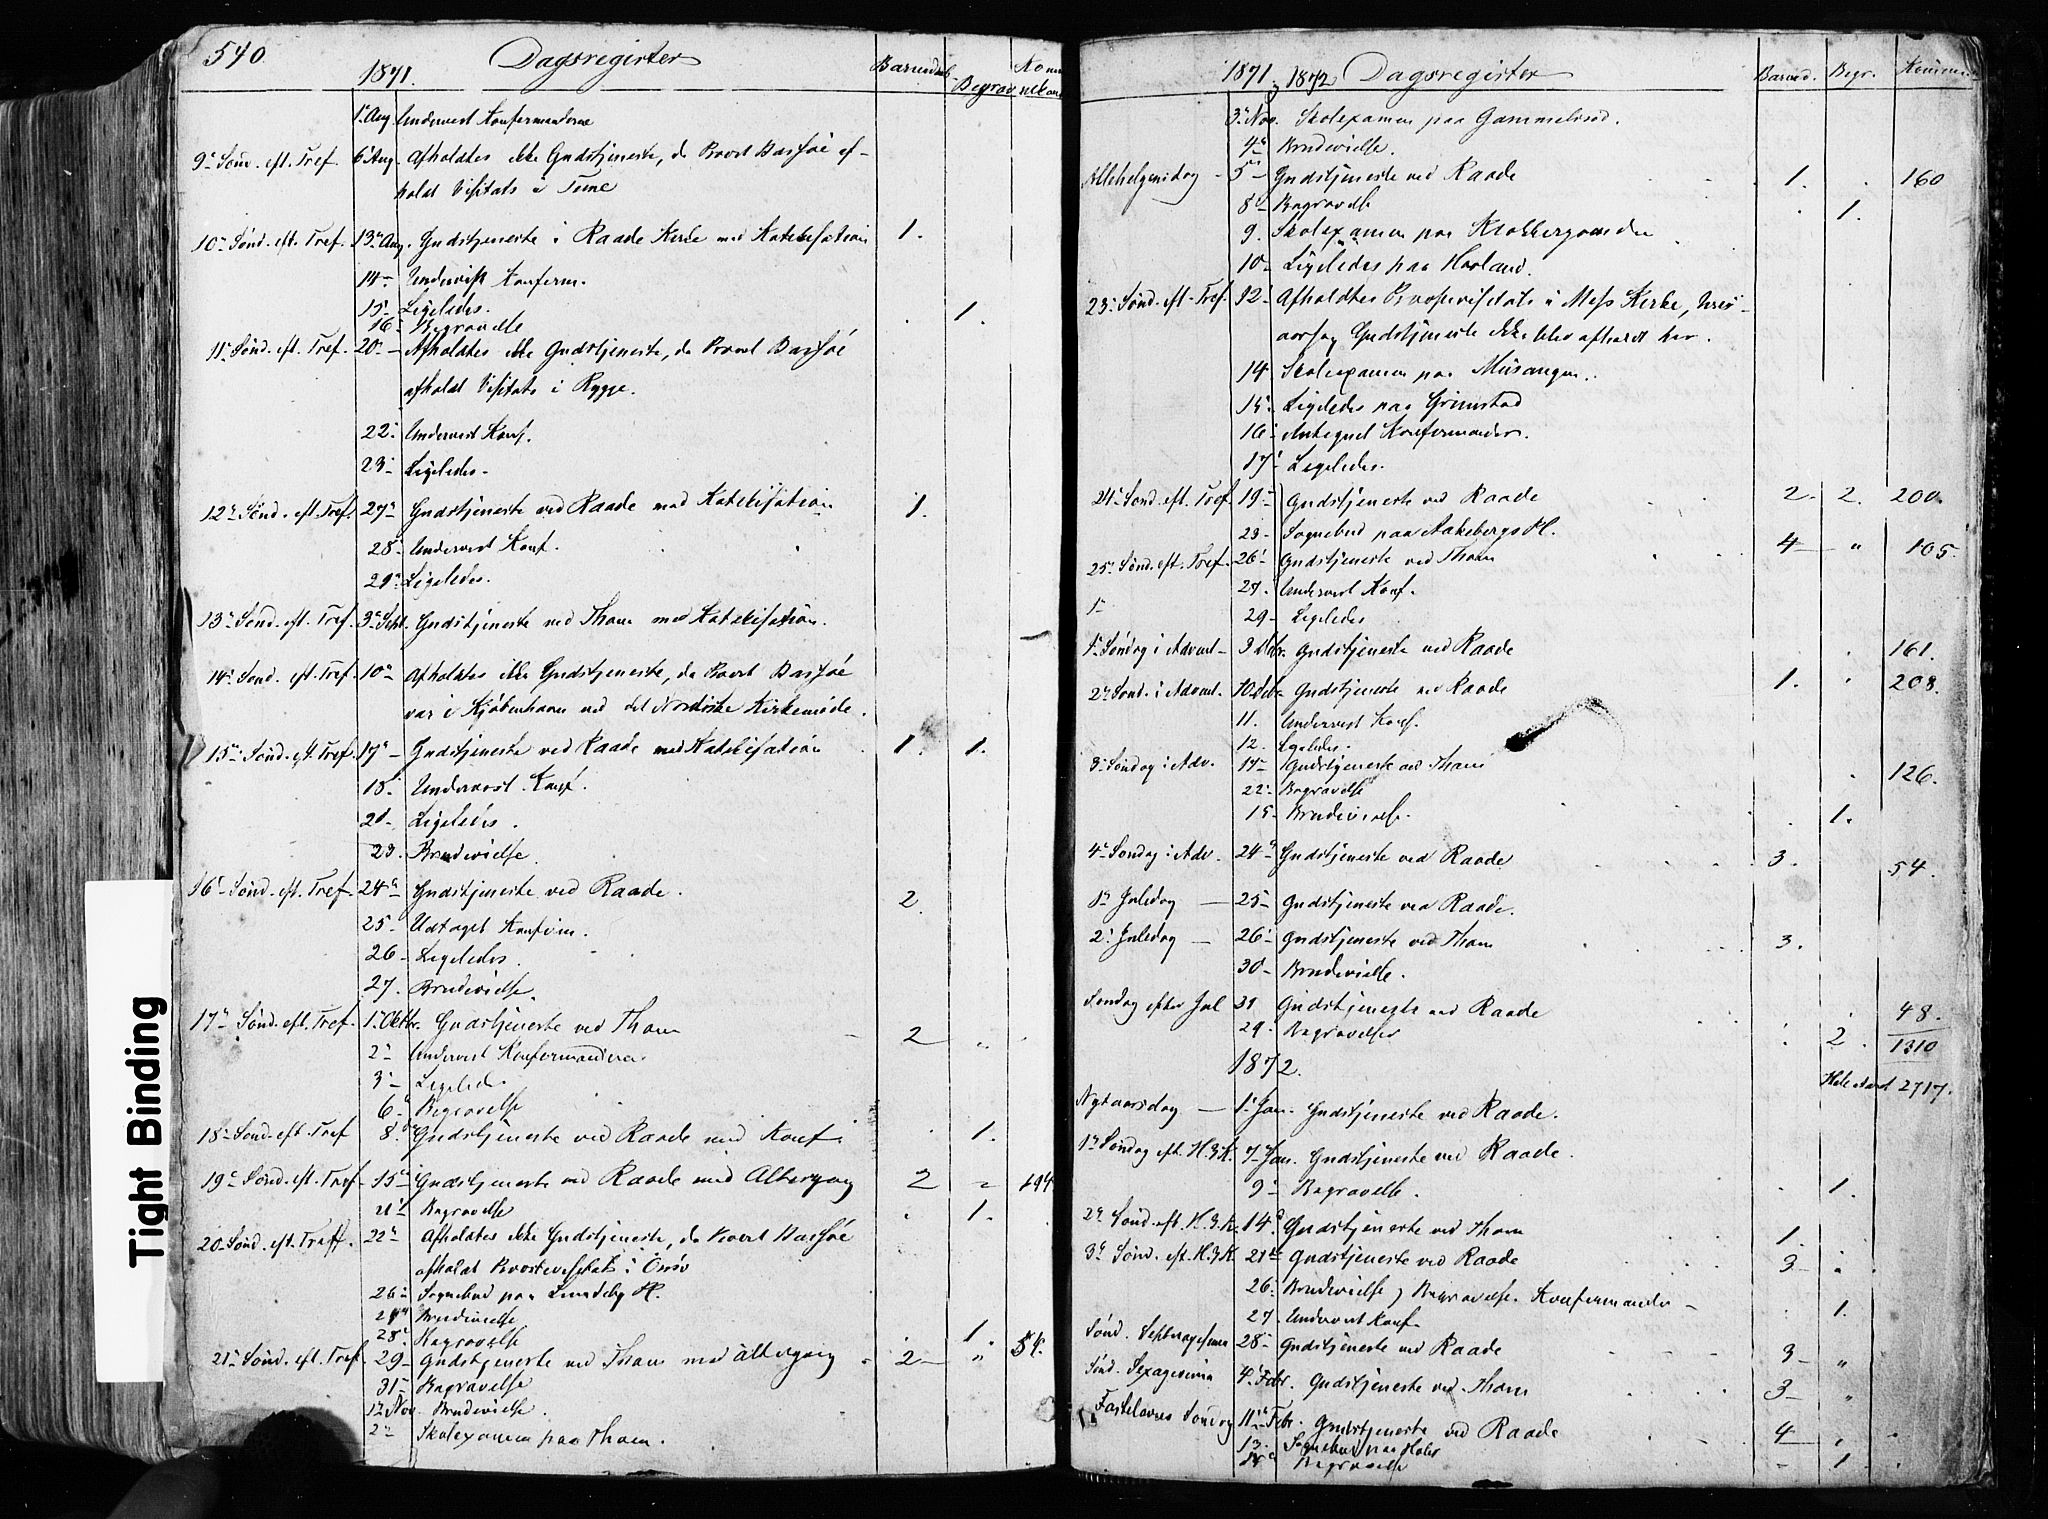 540
1871. Dagsregister Barnedaab Begrav
1ste Aug. Undervist Konfirmanderne
9de Sønd. eft. Tref. 6te Aug. Afholdtes ikke Gudstjeneste, da Provst Barføe af-
holdt Visitats i Tune
10de Sønd. eft. Tref. 13de Aug. Gudstjeneste i Raade Kirke med Katekisation 1.
14 Undervist Konfirm.
15 Ligeledes.
16 Begravelse 1.
11te Sønd. eft. Tref. 20 – Afholdtes ikke Gudstjeneste, da Provst Barføe
afholdt Visitats i Rygge.
22 Undervist Konf.
23 Ligeledes.
12te Sønd. eft. Tref. 27de Gudstjeneste ved Raade med Katekisation 1.
28 Undervist Konf.
29 Ligeledes.
13de Sønd. eft. Tref. 3de Sept. Gudstjeneste ved Thom med Katekisation.
14de Sønd. eft. Tref. 10de Afholdtes ikke Gudstjeneste, da Provst Barføe
var i Kjøbenhavn ved det Nordiske Kirkemøde.
15de Sønd. eft. Tref. 17de – Gudstjeneste ved Raade med Katekisation 1. 1.
18 Undervist Konf.
21 – Ligeledes.
23. Brudevielse.
16de Sønd. eft. Tref. 24de Gudstjeneste ved Raade. 2.
25 Udtaget Konfirm.
26 – Ligeledes.
27. Brudevielse.
17de Sønd. eft. Tref. 1ste Oktbr. Gudstjeneste ved Thom – 2 "
2 Undervist Konfirmanderne.
3 – Ligeled.
6 Begravelse
18 Sønd. eft. Tref 8. Gudstjeneste ved Raade med Konf. 1.
19de Sønd. eft. Tref – 15de Gudstjeneste ved Raade med Altergang 2 " 194
21 Begravelse 1.
20 Sønd. eft. Treff. 22de Afholdtes ikke Gudstjeneste, da Provst Barføe
afholdt Provstevisitats i Onsø
26 Sognebud paa Lundeby H.
27 Brudevielse
28 Begravelse 1.
21de Sønd. eft. Tref. 29 – Gudstjeneste ved Thom med Altergang 2 – " 54.
31 – Begravelse
1ste Nov. Brudevielse.
2 – Skolexamen paa Thom.
1871 og 1872 Dagsregister Barned. Begr. Kommun
3de Nov. Skolexamen paa Gammelsrød.
4de Brudevielse.
Allehelgensdag – 5 – Gudstjeneste ved Raade 1. 160
8 Begravelse 1.
9. Skolexamen paa
10 – Ligeledes paa Høvland.
23 Sønd. eft. Tref. 12 Afholdtes Provstevisitats i Moss Kirke, hvis-
aarsag Gudstjeneste ikke blev afholdt her.
14 Skolexamen paa
15 Ligeledes paa Grimstad
16 Antegnet Konfirmander.
17 Ligeledes.
24 Sønd. eft. Tref 19 – Gudstjeneste ved Raade 2. 2. 200.
23 – Sognebud paa Aakebergs Pl.
25 Sønd. eft. Tref. 26 Gudstjeneste ved Thom 4 – " 105.
27. Undervist Konf.
1 –
29 – Ligeledes
1ste Søndag i Advent – 3 Dcbr. Gudstjeneste ved Raade 161.
2de Sønd. i Advent. 10 Dcbr Gudstjeneste ved Raade 1. 208.
11. Undervist Konf.
12. Ligeledes.
3de Søndag i Adv. 17 – Gudstjeneste ved Thom 126.
22 Begravelse
15 – Brudevielse. 1.
4de Søndag i Adv. 24de Gudstjeneste ved Raade 3. 54.
1ste Juledag – 25 – Gudstjeneste ved Raade.
2. Juledag – 26 Gudstjeneste ved Thom 3.
30 – Brudevielse.
Søndag efter Jul 31 Gudstjeneste ved Raade 48.
29. Begravelser 2. 1310
1872. Hele Aaret 2717.
Nytaarsdag – 1ste Jan. Gudstjeneste ved Raade.
1ste Søndag eft. H. 3 K. 7 Jan. Gudstjeneste ved Raade.
9 – Begravelse. 1.
2de Sønd. eft. H. 3 K. 14de Gudstjeneste ved Thom 1.
3de Sønd. eft. H. 3 K. 21de Gudstjeneste ved Raade 3 – "
26. Brudevielse, Begravelse. Konfirmander – 1.
27. Undervist Konf.
Sønd. Septuagesima 28 – Gudstjeneste ved Raade 3 – "
Sønd. Sexagesima 4de Febr. Gudstjeneste ved Thom 3 – "
Fastelavns Søndag 11te Febr. Gudstjeneste ved Raade 4 –
13. Sognebud paa
Begravelse 1.
Tight Binding